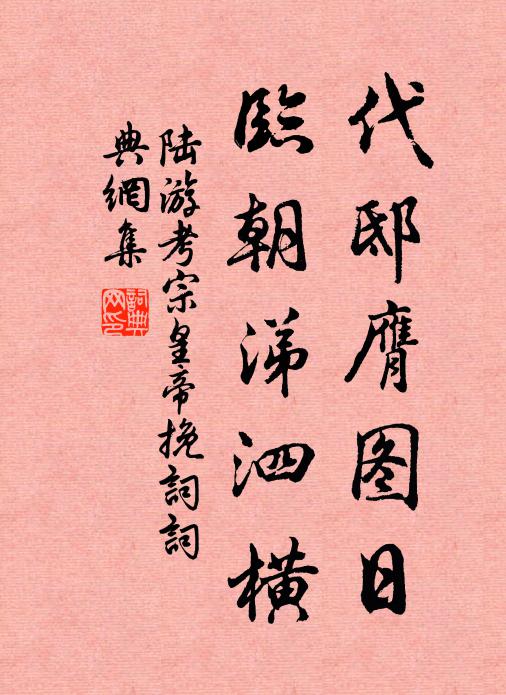 代邸膺图日
臨朝涕泗横
陆游考宗皇帝挽詞詞
典網集
詞典网印